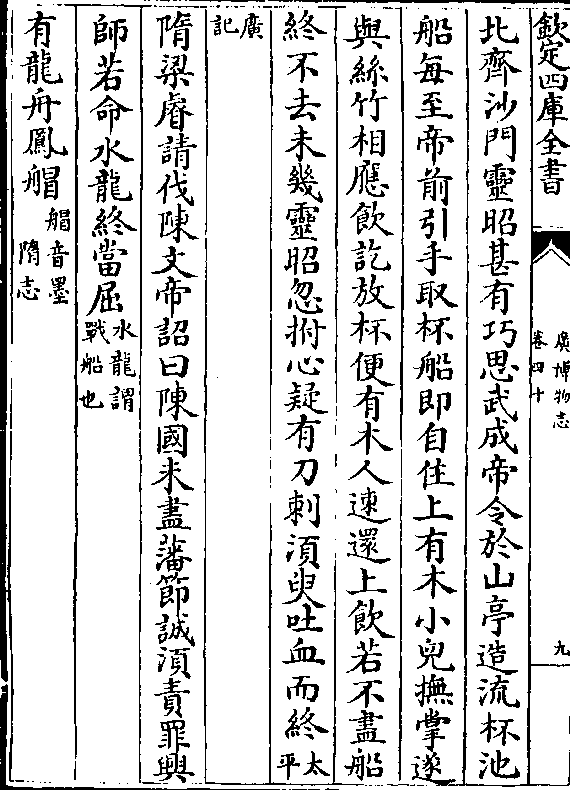 欽定四庫全書
廣博物志
卷四十
九
北齊沙門靈昭甚有巧思武成帝令於山亭造流杯池
船每至帝前引手取杯船即自住上有木小兒撫掌遂
與絲竹相應飲訖放杯便有木人速還上飲若不盡船
終不去未幾靈昭忽拊心疑有刀刺須臾吐血而終太平
廣記
隋梁睿請伐陳文帝詔曰陳國未盡藩節誠須責罪興
師若命水龍終當屈水龍謂戰船也
有龍舟鳳艒艒音墨隋志